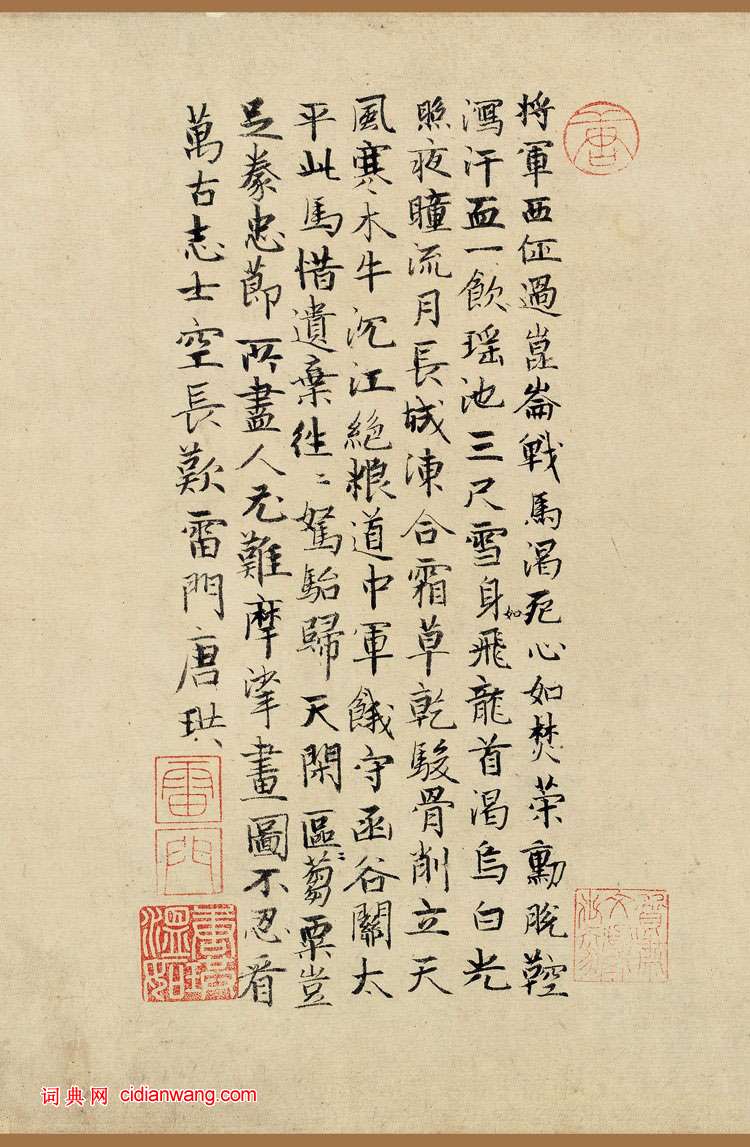 将軍西征過崑崙戦馬渴死心如焚策勳脱鞚
瀉汗血一飲瑶池三尺雪身如飛龍首渴烏白光
照夜瞳流月長城凍合霜草乾駿骨削立天
風寒木牛沉江絶粮道中軍餓守函谷關太
平此馬惜遺棄往〻駑駘歸天閑區〻蒭粟豈
足豢忠節所盡人尤難摩挲畫圖不忍看
萬古志士空長歎雷門唐珙
雷門
唐珙溫如
词典网 cidianwang.com